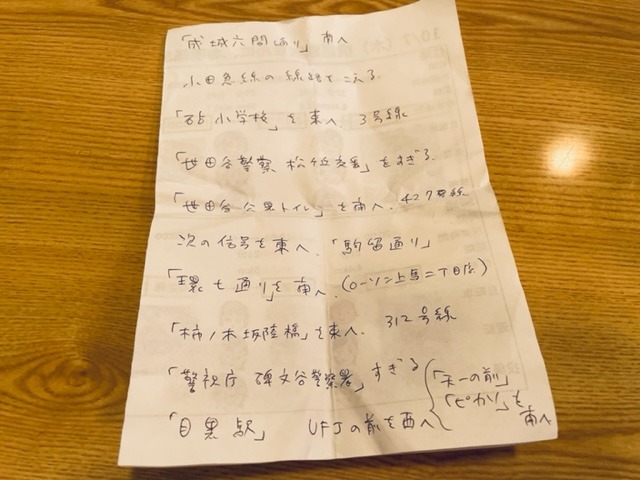 「成城六間通り」南へ
小田急線の線路をこえる
「砧小学校」を東へ、3号線
「世田谷警察 をすぎる
「世田谷公衆トイレ」を南へ、427号線
次の信号を東へ、「駒留通り」
「環七通り」を南へ、(ローソン上馬二丁目店)
「柿ノ木坂陸橋」を東へ、312号線
「警視庁 碑文谷警察署」すぎる
「目黒駅」 UFJの前を西へ
「天一の前」
「ピカソ」を
南へ